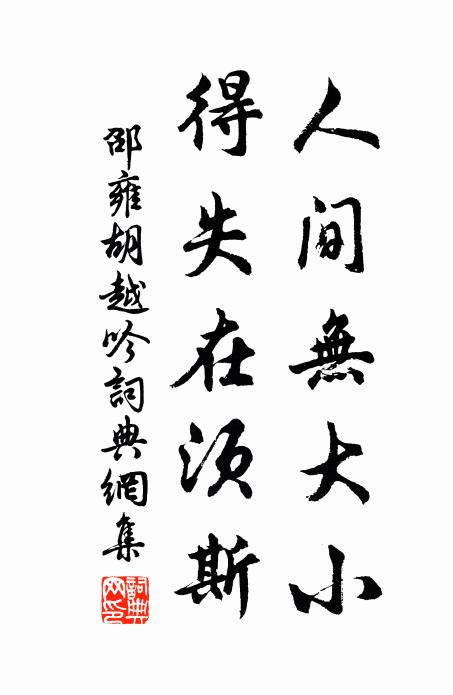 人間無大小
得失在須斯
邵雍胡越吟詞典網集
詞典网印